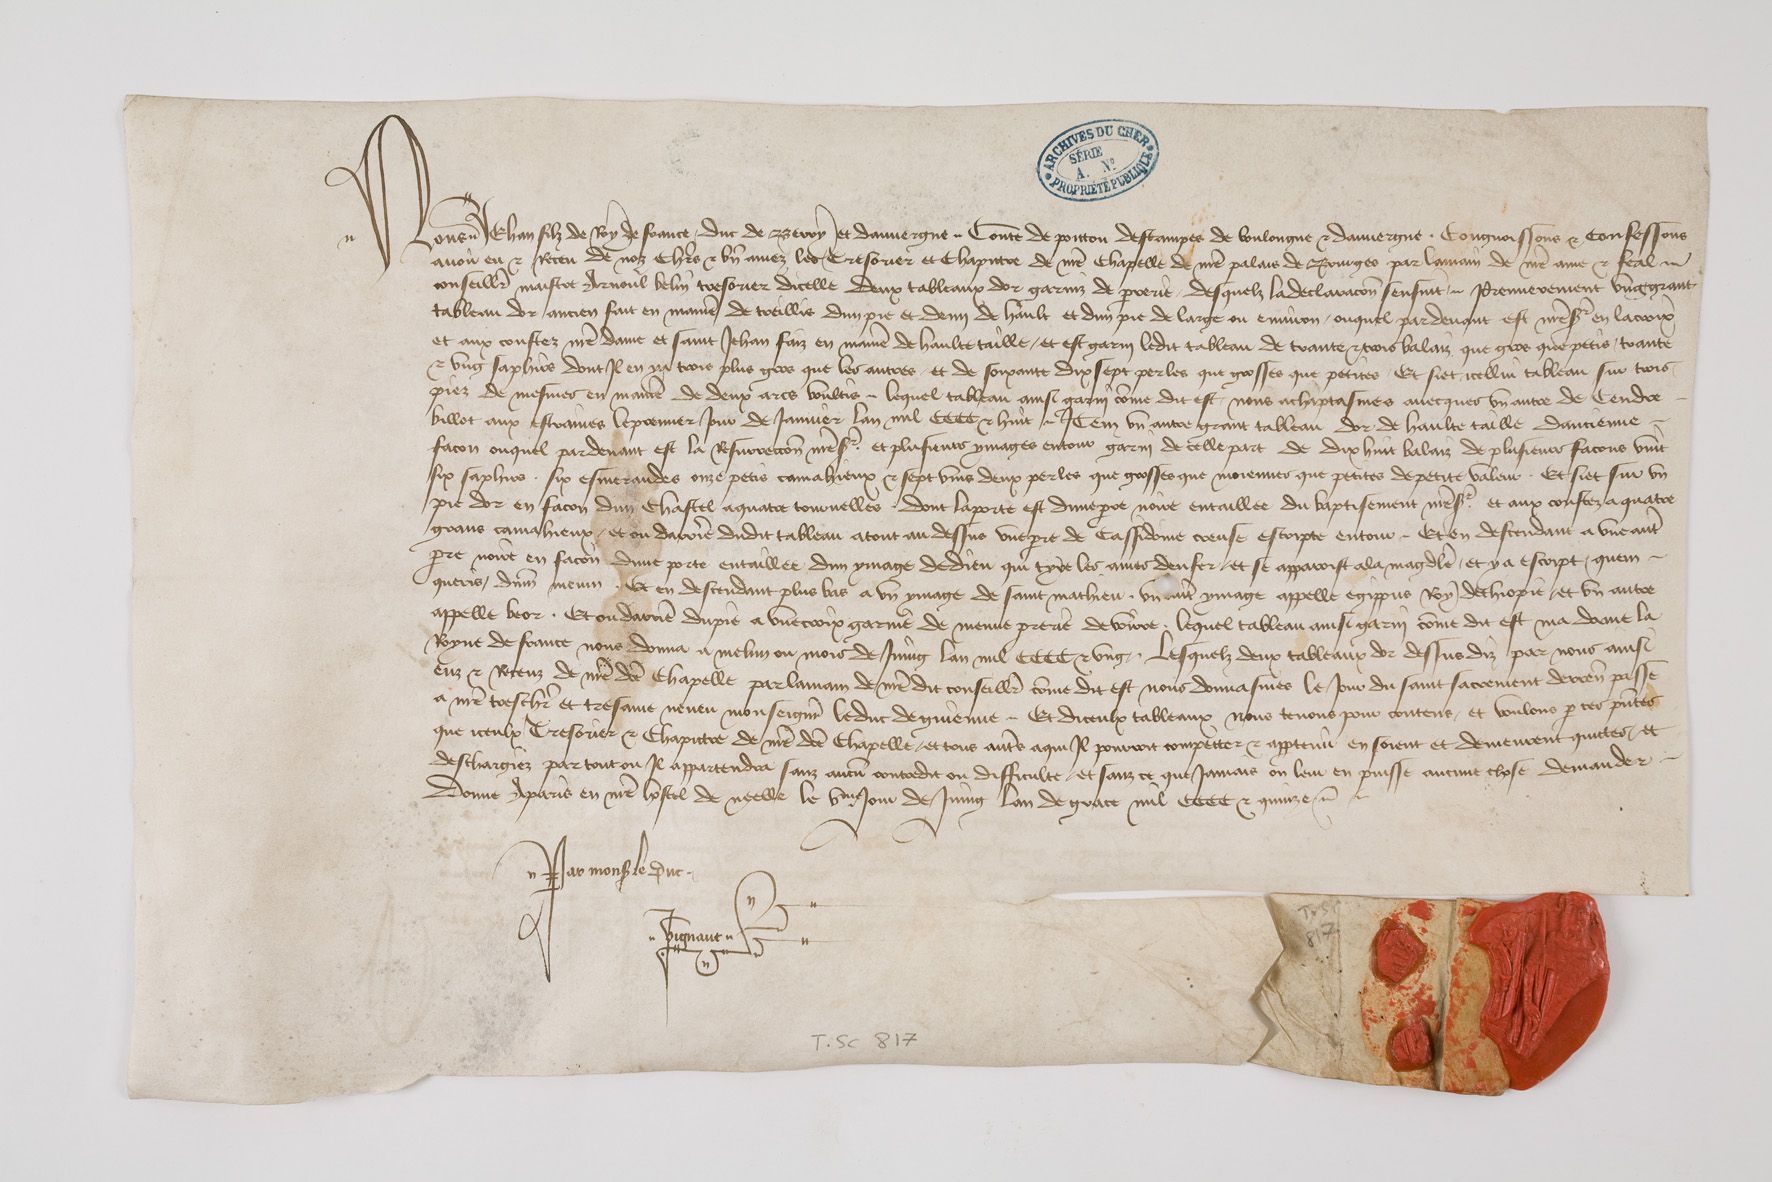 ARCHIVES DU CHER
SÉRIE
A. Nº
PROPRIÉTÉ PUBLIQUE
Nous Jehan filz de Roy de france duc de Berry et dauuergne Conte de poitou destampes de boulongne & dauuergne Congnoissons & confessons
auoir eu & Receu de noz chers & bn amez les Tresorier et Chapitre de nre Chapelle de nre palais de Bourges par lamain de nre ame & feal
conseillr maistre Arnoul belin tresorier dicelle deux tableaux dor garniz de prerie desquelz ladeclaracon sensuit Premierement vng grant
tableau dor ancien fait en maniere de treillis dun pie et demi de hault et dun pie de large ou enuiron ouquel pardeuant est nreSr en lacroix
et aux coustez nre dame et saint Jehan faiz en maniere de haulte taille et est garni ledit tableau de trante & trois balaiz que gros que petis trante
& vng saphirs dont Il en ya trois plus gros que les autres et de soixante dix sept perles que grosses que petites Et siet icellui tableau sur trois
piez de mesmes en maniere de deux ars voultis lequel tableau ainsi garni come dit est nous achaptasmes auecques vn autre de Cendre
billot aux estraines lepremier Jour de Januier lan mil CCCC & huit Item vn autre grant tableau dor de haulte taille dancienne
facon ouquel pardeuant est la Resurreccon nreSr et plusieurs ymages entour garni de celle part de dix huit balaiz de plusieurs facons vint
six saphirs six esmeraudes onze petis camahieux & sept vins deux perles que grosses que moiennes que petites depetite valeur Et siet sur vn
pie dor en facon dun Chastel aquatre tournelles dont laporte est dune pre noire entaillee du baptisement nreSr et aux coustez a quatre
grans camahieux et ou derriere dudit tableau atout au dessus vne pre de Cassidoine creuse escripte entour Et en descendant a vne autre
pre noire en facon dune porte entaillee dun ymage dedieu qui tyre les ames denfer et se apparoist ala magdle et y a escript quem
queris dnm meum Et en descendant plus bas a vn ymage de saint mathieu vn autre ymage appelle egippus Roy dethiopie et vn autre
appelle beor Et ou derriere dupie a vnecroix garnie de menue prerie deuoirre lequel tableau ainsi garni come dit est ma dame la
Royne de france nous donna a melun ou mois de Juing lan mil CCCC & vng Lesquelz deux tableaux dor dessusdiz par nous ainsi
euz & Receuz de nre dce Chapelle par lamain de nre dit conseillr come dit est nous donnasmes le Jour du saint sacrement derrien passe
a nre treschr et tresame neueu monseignr leduc deguienne Et diceulx tableaux nous tenons pour contens et voulons p ces pntes
que iceulx Tresorier & Chapitre de nre dce Chapelle et tous autres aqui Il pourroit compecter & apptenir en soient et demeurent quictes et
deschargiez par tout ou Il appartendra sanz aucun contredit ou difficulte et sanz ce que Jamais on leur en puisse aucune chose demander
Donne Aparis en nre hostel de neelle le Jour de Juing lan de grace mil CCCC & quinze
Par monsr le Duc
T.SC
817
T.Sc 817